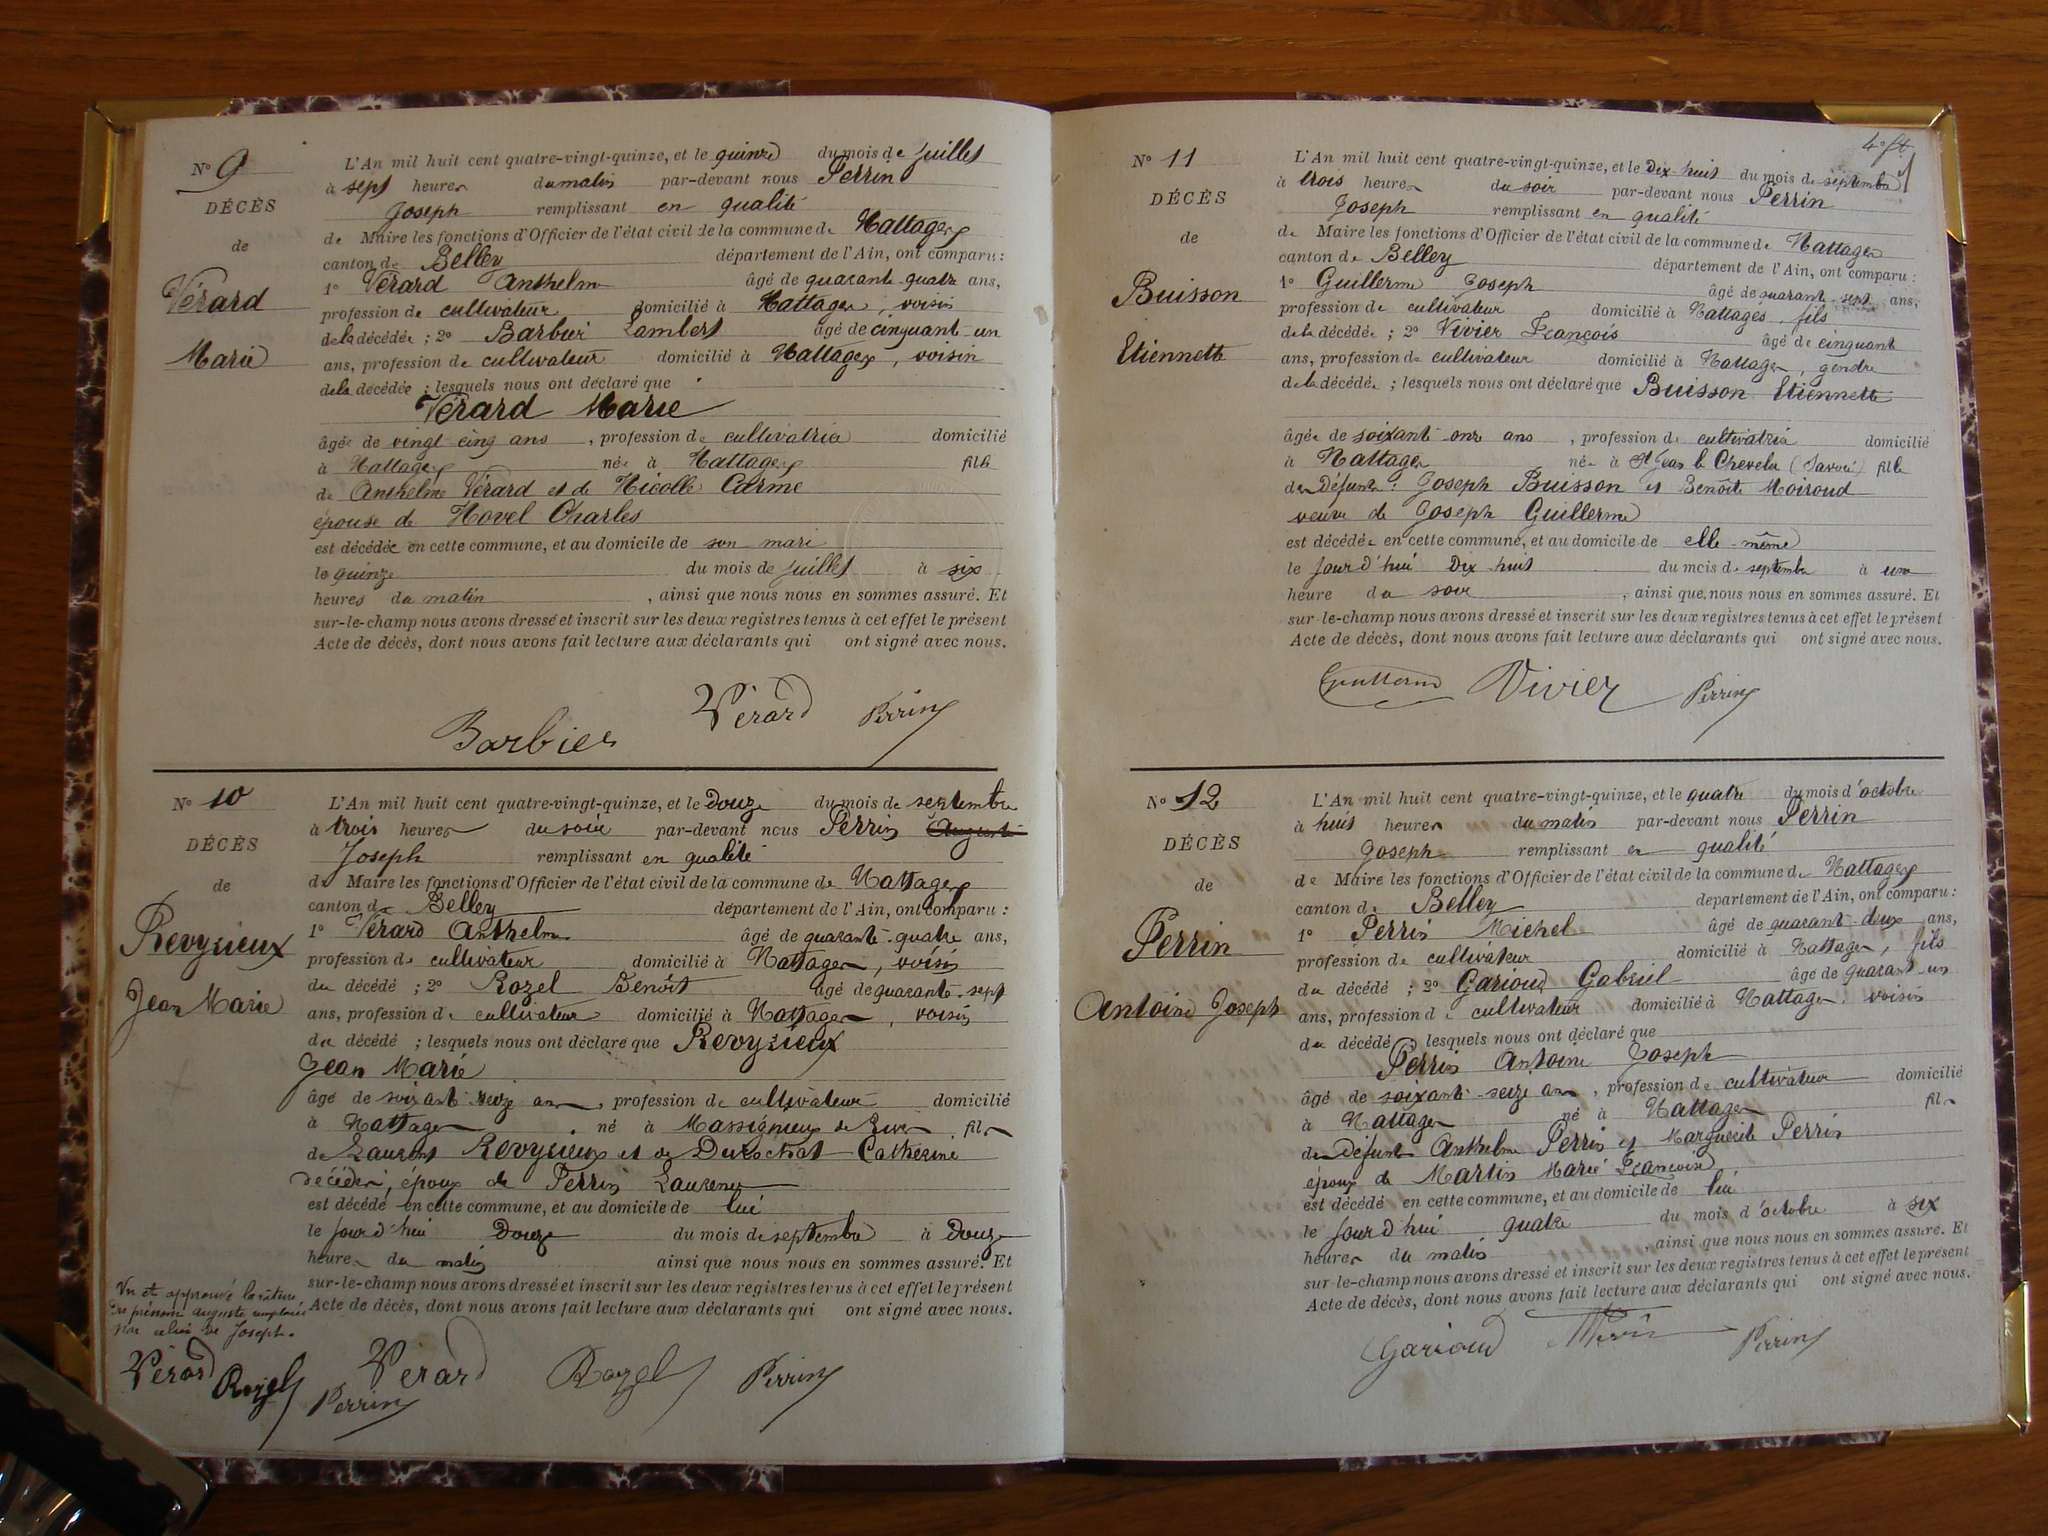 N° 9
DÉCÈS
de
Vérard
Marie
L'An mil huit cent quatre-vingt-quinze, et le quinze du mois de juillet
à sept heures du matin par-devant nous Perrin
Joseph remplissant en qualité
de Maire les fonctions d'Officier de l'état civil de la commune de Nattages
canton de Belley département de l'Ain, ont comparu :
1° Vérard Anthelme âgé de quarante quatre ans,
profession de cultivateur domicilié à Nattages, voisin
de la décédée ; 2° Barbier Lambert âgé de cinquante-un
ans, profession de cultivateur domicilié à Nattages, voisin
de la décédée ; lesquels nous ont déclaré que
Vérard Marie
âgée de vingt cinq ans, profession de cultivatrice domicilié
à Nattages née à Nattages fille
de Anthelme Vérard et de Nicolle Carme
épouse de Hovel Charles
est décédée en cette commune, et au domicile de son mari
le quinze du mois de juillet à six
heures du matin, ainsi que nous nous en sommes assuré. Et
sur-le-champ nous avons dressé et inscrit sur les deux registres tenus à cet effet le présent
Acte de décès, dont nous avons fait lecture aux déclarants qui ont signé avec nous.
Barbier Vérard Perrin
N° 10
DÉCÈS
de
Revyrieux
Jean Marie
L'An mil huit cent quatre-vingt-quinze, et le Douze du mois de septembre
à trois heures du soir par-devant nous Perrin Auguste
Joseph remplissant en qualité
de Maire les fonctions d'Officier de l'état civil de la commune de Nattages
canton de Belley département de l'Ain, ont comparu :
1° Vérard Anthelme âgé de quarante-quatre ans,
profession de cultivateur domicilié à Nattages, voisin
du décédé ; 2° Rozel Benoît âgé de quarante-sept
ans, profession de cultivateur domicilié à Nattages, voisin
du décédé ; lesquels nous ont déclaré que Revyrieux
Jean Marie
âgé de soixante seize ans, profession de cultivateur domicilié
à Nattages né à Massignieux de Rives fils
de Laurent Revyrieux et de Catherine
décédés, époux de Perrin
est décédé en cette commune, et au domicile de lui
le jour d'hui Douze du mois de septembre à Douze
heures du matin ainsi que nous nous en sommes assuré. Et
sur-le-champ nous avons dressé et inscrit sur les deux registres tenus à cet effet le présent
Acte de décès, dont nous avons fait lecture aux déclarants qui ont signé avec nous.
Vu et approuvé la rature
du prénom auguste remplacé
par celui de Joseph.
Vérard Rozel Perrin Vérard Rozel Perrin
N° 11
DÉCÈS
de
Buisson
Etiennette
L'An mil huit cent quatre-vingt-quinze, et le Dix-huit du mois de septembre
à trois heures du soir par-devant nous Perrin
Joseph remplissant en qualité
de Maire les fonctions d'Officier de l'état civil de la commune de Nattages
canton de Belley département de l'Ain, ont comparu :
1° Guillerme Joseph âgé de quarante-sept ans,
profession de cultivateur domicilié à Nattages, fils
de la décédée ; 2° Vivier François âgé de cinquante
ans, profession de cultivateur domicilié à Nattages, gendre
de la décédée ; lesquels nous ont déclaré que Buisson Etiennette
âgée de soixante onze ans, profession de cultivatrice domicilié
à Nattages née à St Jean le Chevelu (Savoie) fille
des Défunts : Joseph Buisson et Benoîte Moiroud
veuve de Joseph Guillerme
est décédée en cette commune, et au domicile de elle-même
le jour d'hui Dix-huit du mois de septembre à une
heure du soir, ainsi que nous nous en sommes assuré. Et
sur-le-champ nous avons dressé et inscrit sur les deux registres tenus à cet effet le présent
Acte de décès, dont nous avons fait lecture aux déclarants qui ont signé avec nous.
Guillerme Vivier Perrin
N° 12
DÉCÈS
de
Perrin
Antoine Joseph
L'An mil huit cent quatre-vingt-quinze, et le quatre du mois d'octobre
à huit heures du matin par-devant nous Perrin
Joseph remplissant en qualité
de Maire les fonctions d'Officier de l'état civil de la commune de Nattages
canton de Belley département de l'Ain, ont comparu :
1° Perrin Michel âgé de quarante-deux ans,
profession de cultivateur domicilié à Nattages, fils
du décédé ; 2° Garioud Gabriel âgé de quarante-un
ans, profession de cultivateur domicilié à Nattages voisin
du décédé, lesquels nous ont déclaré que
Perrin Antoine Joseph
âgé de soixante-seize ans, profession de cultivateur domicilié
à Nattages né à Nattages fils
des Défunts Anthelme Perrin et Marguerite Perrin
époux de Martin Marie Françoise
est décédé en cette commune, et au domicile de lui
le jour d'hui quatre du mois d'octobre à six
heures du matin, ainsi que nous nous en sommes assuré. Et
sur-le-champ nous avons dressé et inscrit sur les deux registres tenus à cet effet le présent
Acte de décès, dont nous avons fait lecture aux déclarants qui ont signé avec nous.
Garioud Perrin